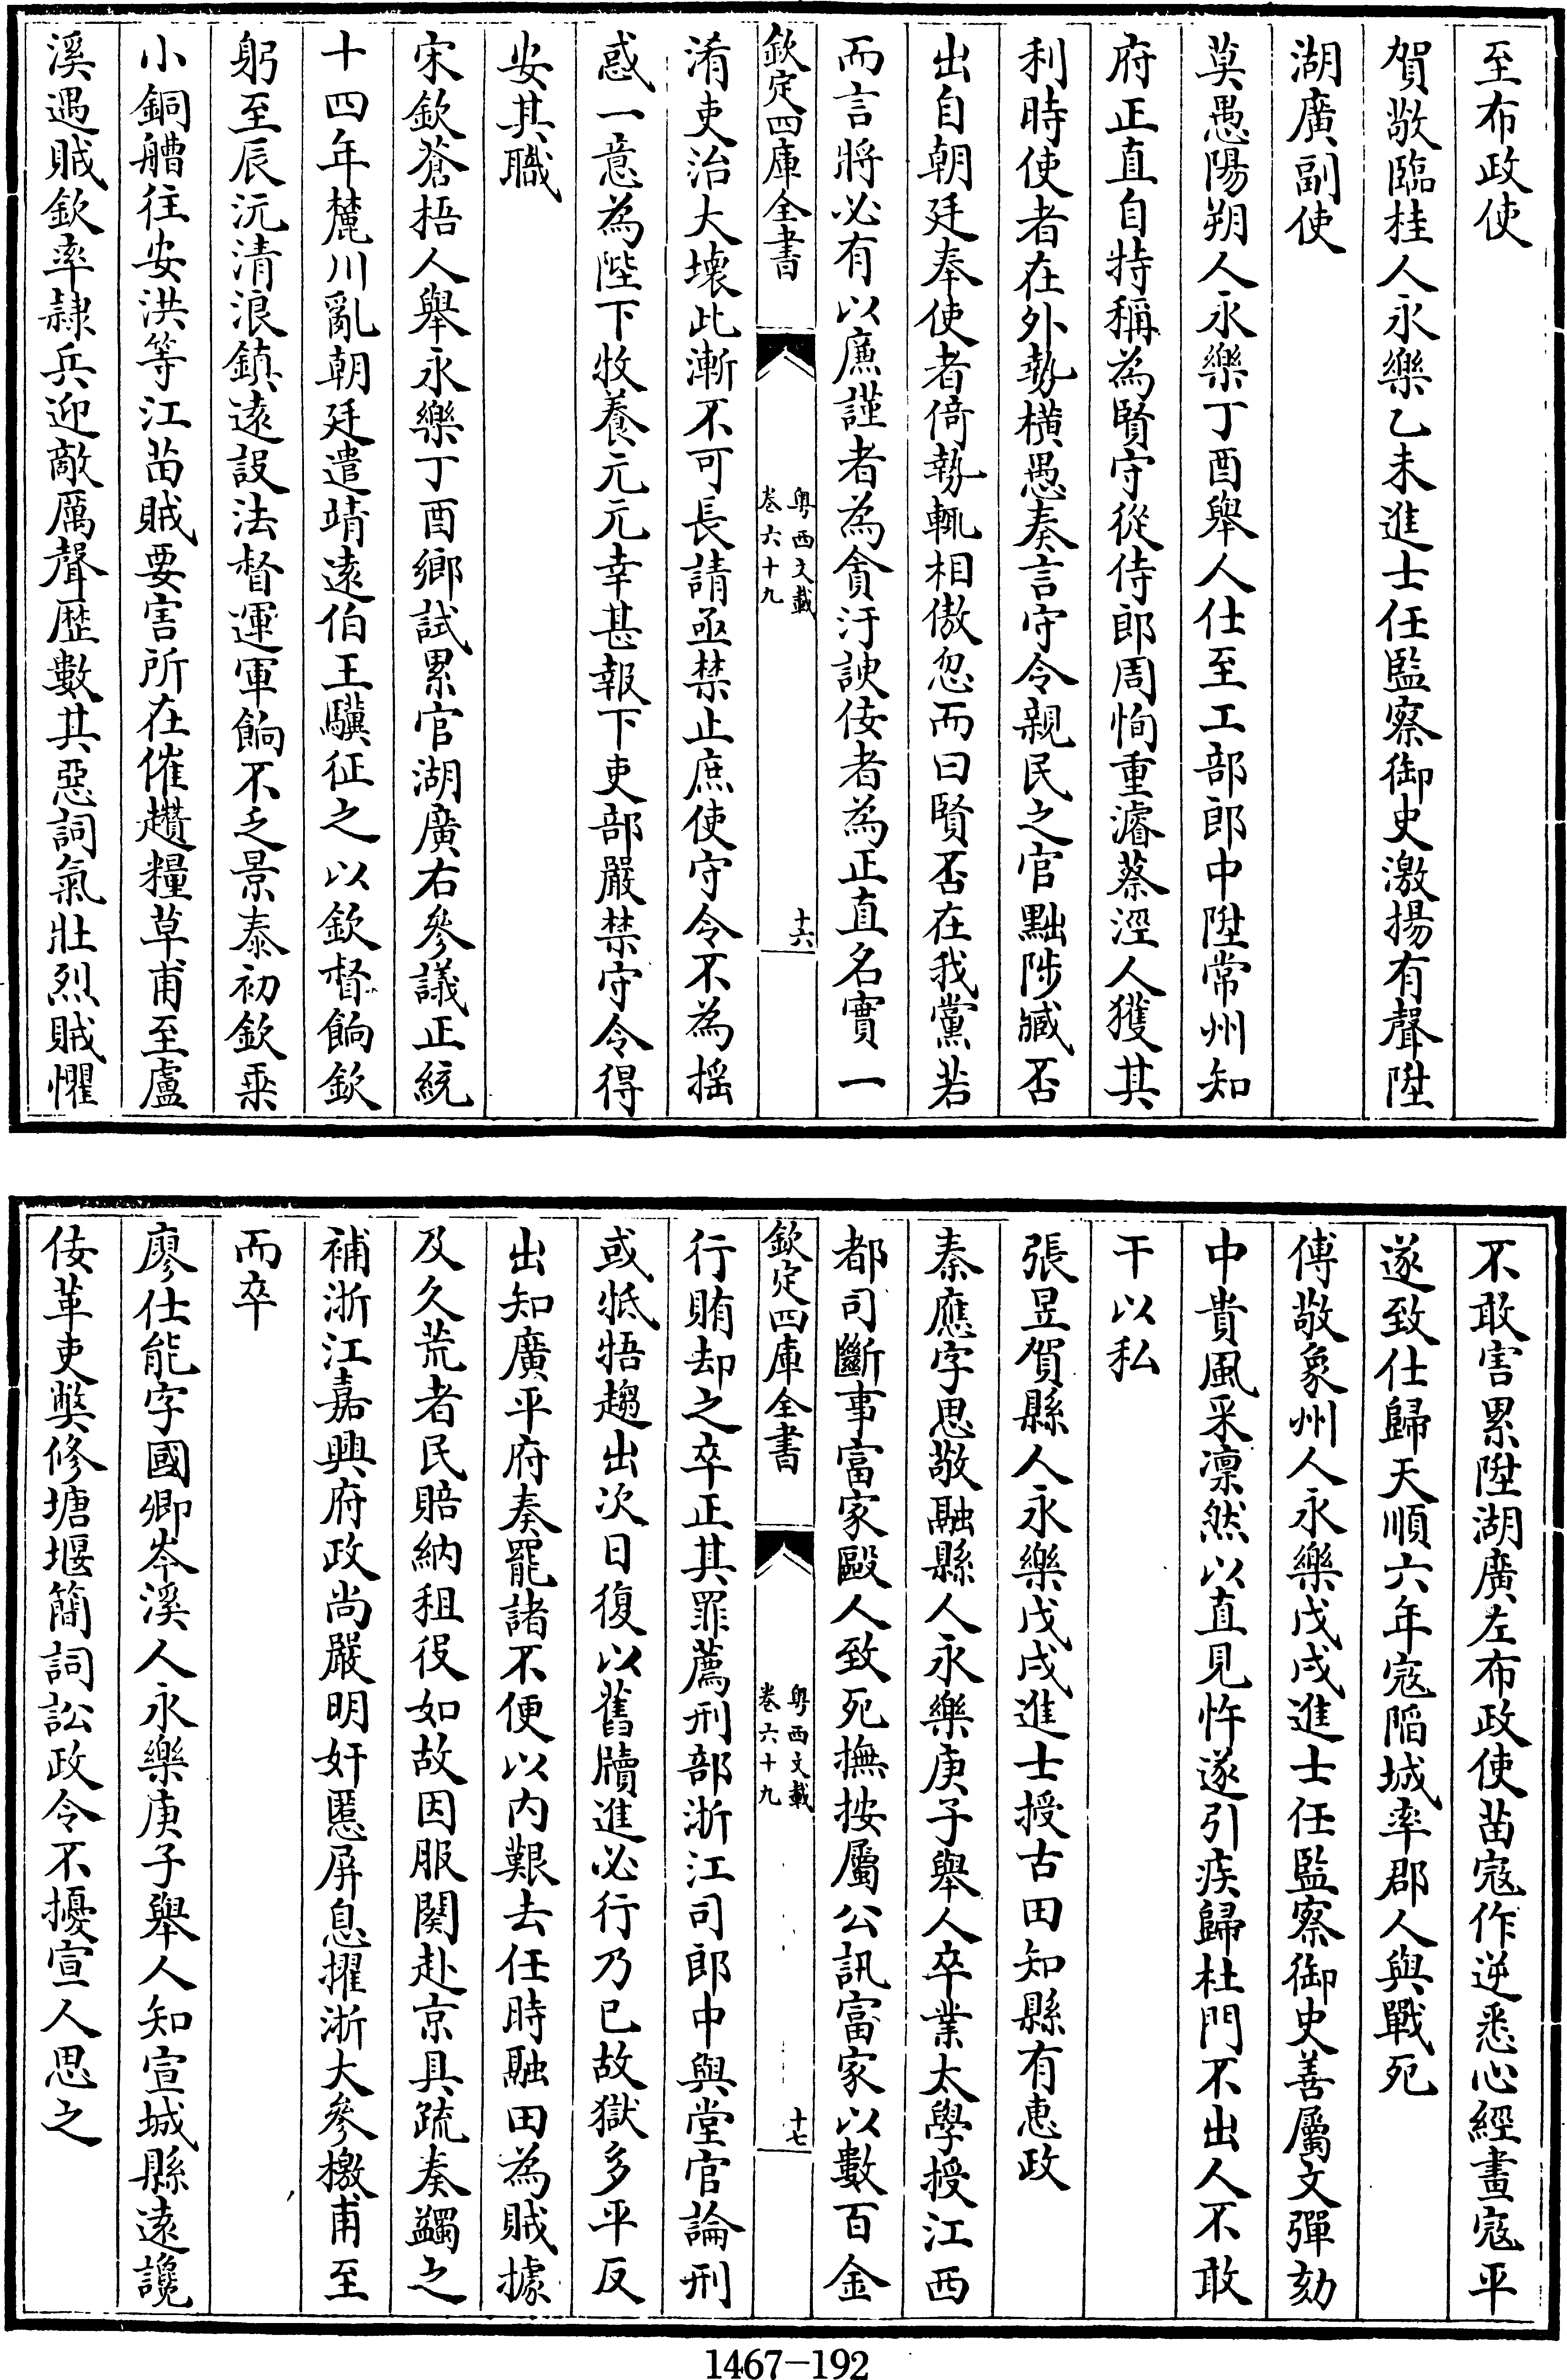 至布政使
賀敬臨桂人永樂乙未進士任監察御史激揚有聲陞
湖廣副使
莫愚陽朔人永樂丁酉舉人仕至工部郎中陞常州知
府正直自特稱為賢守從侍郎周恂重濬蔡涇人獲其
利時使者在外勢橫愚奏言守令親民之官黜陟臧否
出自朝廷奉使者倚勢輒相傲忽而曰賢否在我黨若
而言將必有以廉謹者為貪汙諛佞者為正直名實一
欽定四庫全書
粵西文載
卷六十九
十六
淆吏治大壞此漸不可長請亟禁止庶使守令不為搖
惑一意為陛下牧養元元幸甚報下吏部嚴禁守令得
安其職
宋欽蒼梧人舉永樂丁酉鄉試累官湖廣右參議正統
十四年麓川亂朝廷遣靖遠伯王驥征之以欽督餉欽
躬至辰沅清浪鎮遠設法督運軍餉不乏景泰初欽乘
小銅艚往安洪等江苗賊要害所在催趲糧草甫至盧
溪遇賊欽率隷兵迎敵厲聲歷數其惡詞氣壯烈賊懼
不敢害累陞湖廣左布政使苗寇作逆悉心經畫寇平
遂致仕歸天順六年寇陷城率郡人與戰死
傅敬象州人永樂戊戌進士任監察御史善屬文彈劾
中貴風采凛然以直見忤遂引疾歸杜門不出人不敢
干以私
張昱賀縣人永樂戊戌進士授古田知縣有惠政
秦應字思敬融縣人永樂庚子舉人卒業太學授江西
都司斷事富家毆人致死撫按屬公訊富家以數百金
欽定四庫全書
粵西文載
卷六十九
十七
行賄却之卒正其罪薦刑部浙江司郎中與堂官論刑
或牴牾趨出次日復以舊牘進必行乃已故獄多平反
出知廣平府奏罷諸不便以内艱去任時融田為賊據
及久荒者民賠納租役如故因服闋赴京具疏奏蠲之
補浙江嘉興府政尚嚴明奸慝屏息擢浙大參檄甫至
而卒
廖仕能字國卿岑溪人永樂庚子舉人知宣城縣遠讒
佞革吏獘修塘堰簡詞訟政令不擾宣人思之
1467-192